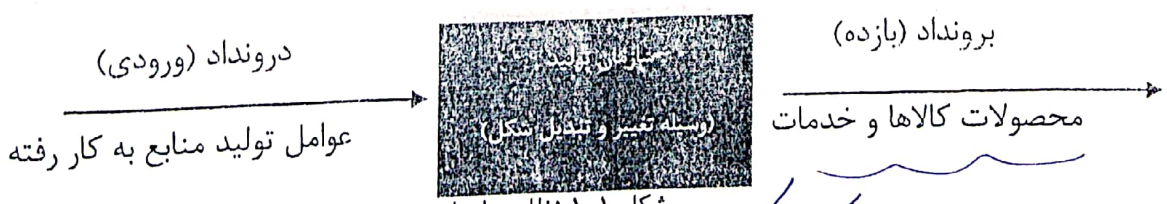 درونداد (ورودی)
عوامل تولید منابع به کار رفته
سازمان تولید
(وسیله تغییر و تبدیل شکل)
برونداد (بازده)
محصولات کالاها و خدمات
شکل ۱-۱